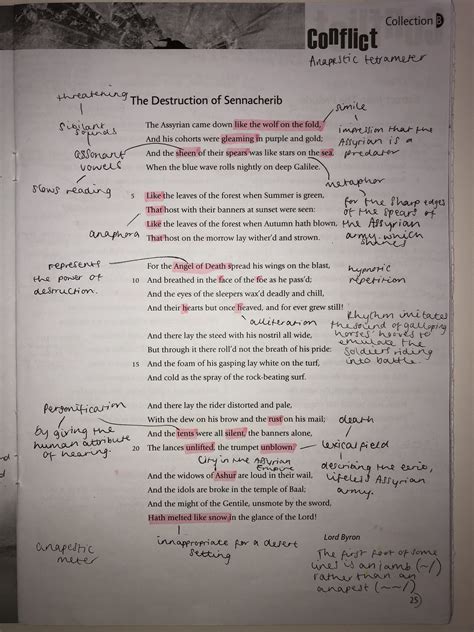 Collection B
Conflict
Anapestic tetrameter
threatening
The Destruction of Sennacherib
simile
The Assyrian came down like the wolf on the fold,
sibilant
sounds
impression that the
Assyrian is a
predator
And his cohorts were gleaming in purple and gold;
assonant
vowels
And the sheen of their spears was like stars on the sea,
When the blue wave rolls nightly on deep Galilee.
metaphor
slows reading
5 Like the leaves of the forest when Summer is green,
for the sharp edges
of the spears of
the Assyrian
army which
shines
That host with their banners at sunset were seen:
Like the leaves of the forest when Autumn hath blown,
anaphora
That host on the morrow lay wither'd and strown.
represents
the power of
destruction.
For the Angel of Death spread his wings on the blast,
hypnotic
repetition
10 And breathed in the face of the foe as he pass'd;
And the eyes of the sleepers wax'd deadly and chill,
And their hearts but once heaved, and for ever grew still!
alliteration
Rhythm imitates
the sound of galloping
horses' hooves to
emulate the
soldiers riding
into battle.
And there lay the steed with his nostril all wide,
But through it there roll'd not the breath of his pride:
15 And the foam of his gasping lay white on the turf,
And cold as the spray of the rock-beating surf.
Personification
by giving the
human attribute
of hearing.
And there lay the rider distorted and pale,
With the dew on his brow and the rust on his mail;
death
And the tents were all silent, the banners alone,
20 The lances unlifted, the trumpet unblown.
lexical field
describing the eerie,
lifeless Assyrian
army.
City in the Assyrian
Empire
And the widows of Ashur are loud in their wail,
And the idols are broke in the temple of Baal;
And the might of the Gentile, unsmote by the sword,
Hath melted like snow in the glance of the Lord!
innappropriate for a desert
setting
Lord Byron
anapestic
meter
The first foot of some
lines is an iamb (~/)
rather than an
anapest (~~/)
25